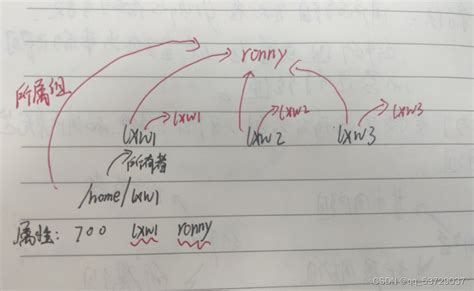 ronny
所属组
lxw1
lxw2
lxw3
lxw1
lxw2
lxw3
所有者
/home/lxw1
属性: 700 lxw1 ronny
CSDN @qq_53729037